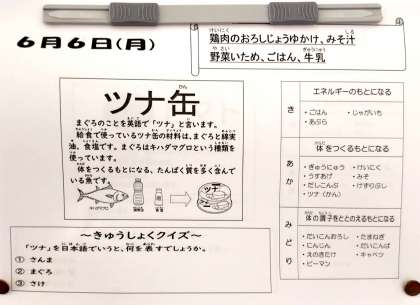 6月6日(月)
鶏肉のおろしじょうゆかけ、みそ汁
野菜いため、ごはん、牛乳
ツナ缶
まぐろのことを英語で「ツナ」と言います。
給食で使っているツナ缶の材料は、まぐろと綿実
油、食塩です。まぐろはキハダマグロという種類を
使っています。
体をつくるもとになる、たんぱく質を多く含んで
いる魚です。
ツナ
～きゅうしょくクイズ～
「ツナ」を日本語でいうと、何を表すでしょうか。
① さんま
② まぐろ
③ さけ
き
エネルギーのもとになる
・ごはん ・じゃがいも
・あぶら
あか
体をつくるもとになる
・ぎゅうにゅう ・けいにく
・うすあげ ・みそ
・だしこんぶ ・けずりぶし
・ツナ(かん)
みどり
体の調子をととのえるもとになる
・だいこんおろし ・たまねぎ
・にんじん ・だいこんば
・えのきたけ ・キャベツ
・ピーマン